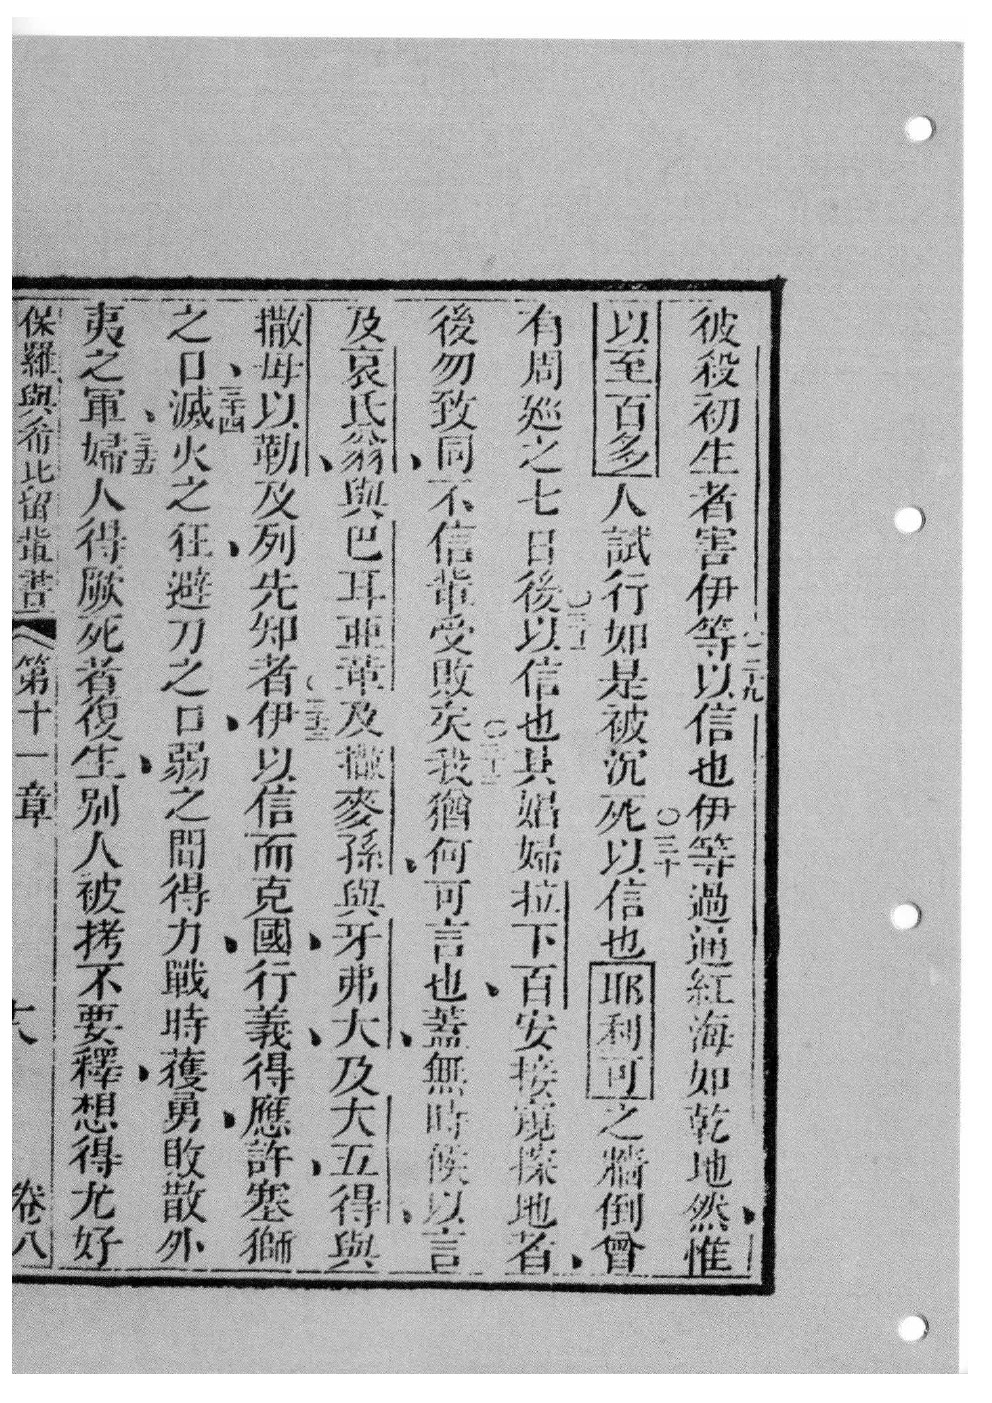 彼殺初生者害伊等○二十九以信也伊等過通紅海如乾地然、惟
以至百多人試行如是被沉死○三十以信也耶利可之牆倒曾
有周廵之七日後○三十一以信也其娼婦拉下百安接窺探地者、
後勿致同不信軰受敗矣○三十二我猶何可言也、蓋無時候以言
及哀氏翁、與巴耳亜革及撒麥孫、與牙弗大、及大五得、與
撒毋以勒、及列先知者○三十三伊以信而克國、行義、得應許、塞獅
之口、三十四滅火之狂、避刀之口、弱之間得力、戰時獲勇、敗散外
夷之軍、三十五婦人得厥死者復生、別人被拷不要釋、想得尤好
保羅與希比留軰書 第十一章 卷八